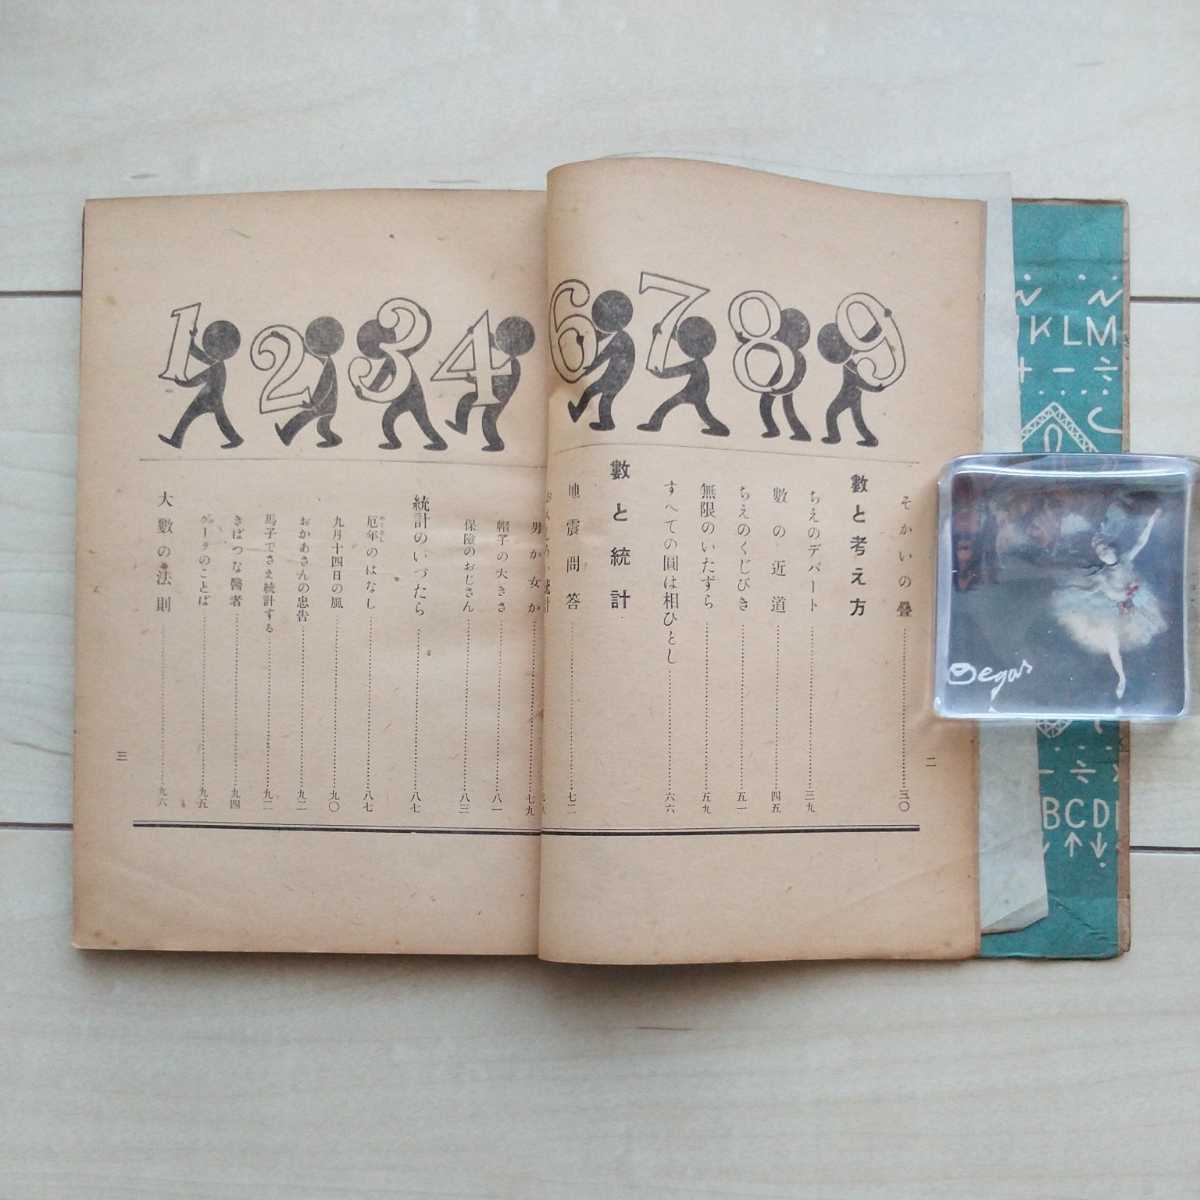 1 2 3 4 6 7 8 9
そかいの疊……三〇
數と考え方
ちえのデパート……三九
數の近道……四五
ちえのくじびき……五一
無限のいたずら……五九
すべての圓は相ひとし……六六
數と統計
地震問答……七二
二
男か女か……七九
帽子の大きさ……八一
保險のおじさん……八三
統計のいづたら……八七
厄年のはなし……八七
九月十四日の風……九〇
おかあさんの忠告……九二
馬子でさえ統計する……九二
きばつな醫者……九四
のことば……九五
大數の法則……九六
三
KLM
Degas
BCD